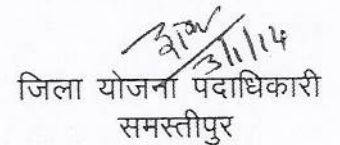 3/1/14
जिला योजना पदाधिकारी
समस्तीपुर